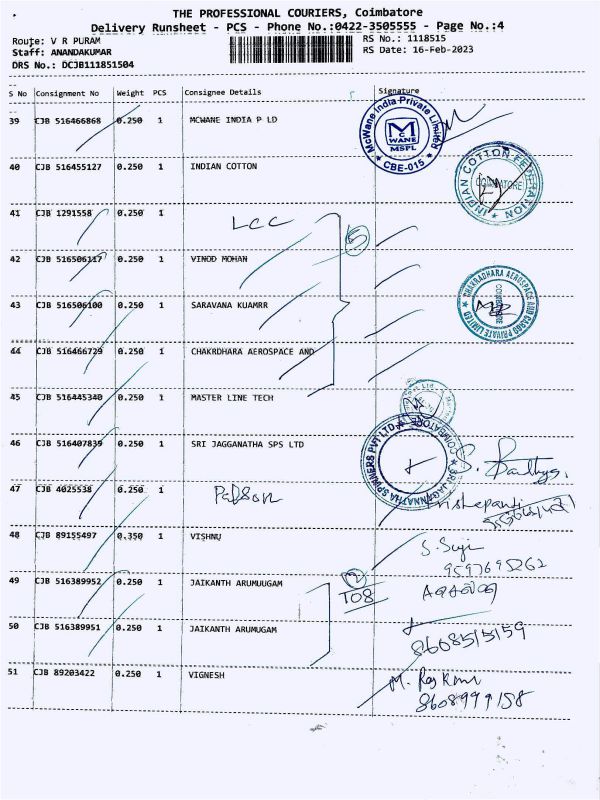 THE PROFESSIONAL COURIERS, Coimbatore
Delivery Runsheet - PCS - Phone No.:0422-3505555 - Page No.:4
Route: V R PURAM
RS No.: 1118515
Staff: ANANDAKUMAR
RS Date: 16-Feb-2023
DRS No.: DCJB111851504
S No Consignment No Weight PCS Consignee Details Signature
39 CJB 516466868 0.250 1 MCWANE INDIA P LD
McWane India Private Limited
M
WANE
MSPL
★ CBE-015 ★
40 CJB 516455127 0.250 1 INDIAN COTTON
INDIAN COTTON FEDERATION
COIMBATORE
41 CJB 1291558 0.250 1 LCC
5
42 CJB 516506117 0.250 1 VINOD MOHAN
43 CJB 516506100 0.250 1 SARAVANA KUAMRR
CHAKRADHARA AEROSPACE AND CARGO PRIVATE LIMITED
COIMBATORE
44 CJB 516466729 0.250 1 CHAKRDHARA AEROSPACE AND
45 CJB 516445340 0.250 1 MASTER LINE TECH
46 CJB 516407839 0.250 1 SRI JAGGANATHA SPS LTD
SRI JAGANNATHA SPINNERS PVT LTD ★ COIMBATORE ★
47 CJB 4025538 0.250 1
48 CJB 89155497 0.350 1 VISHNU
S. Suji
9597695262
49 CJB 516389952 0.250 1 JAIKANTH ARUMUUGAM
2
TO8
50 CJB 516389951 0.250 1 JAIKANTH ARUMUGAM
8608515159
51 CJB 89203422 0.250 1 VIGNESH
M. Raj Kumar
8608999158